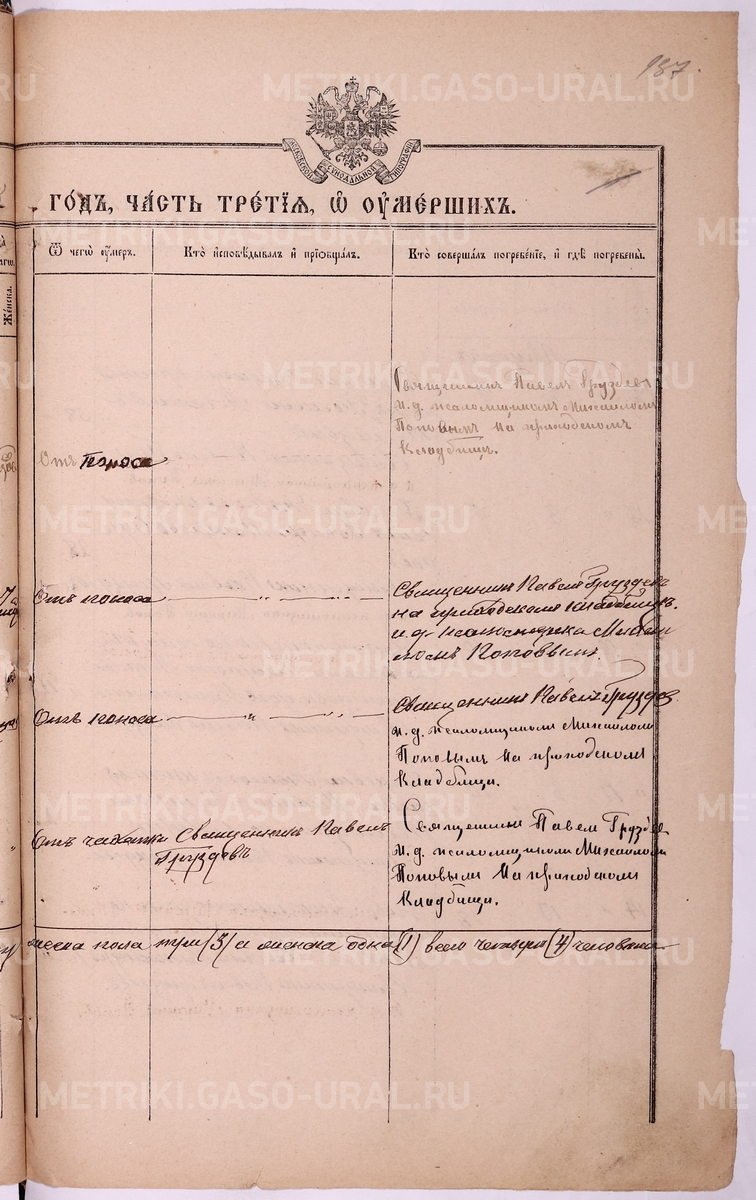 187.
МОСКОВСКОЙ СУНОДАЛЬНОЙ ТИПОГРАФІИ
ГОДЪ, ЧАСТЬ ТРЕТІЯ, Ѿ ОУМЕРШИХЪ.
Женска.
Ѿ чегѡ оумеръ.
Кто исповѣдывалъ и пріобщалъ.
Кто совершалъ погребеніе, и гдѣ погребены.
Священникъ Павелъ Груздевъ
и. д. псаломщикомъ Михаиломъ
Поповымъ на приходскомъ
Кладбищѣ.
Отъ поноса
Отъ поноса
Священникъ Павелъ Груздевъ
на приходскомъ кладбищѣ.
и. д. псаломщика Михаи
ломъ Поповымъ.
Отъ поноса
Священникъ Павелъ Груздев
и. д. псаломщиком Михаилом
Поповымъ на приходском
Кладбищи.
Отъ чахотки
Священникъ Павелъ
Груздевъ
Священник Павел Груздев
и. д. псаломщиком Михаилом
Поповым на приходском
Кладбищи.
мужеска пола три (3) и женска одна (1) всего четыре (4) человека
METRIKI.GASO-URAL.RU